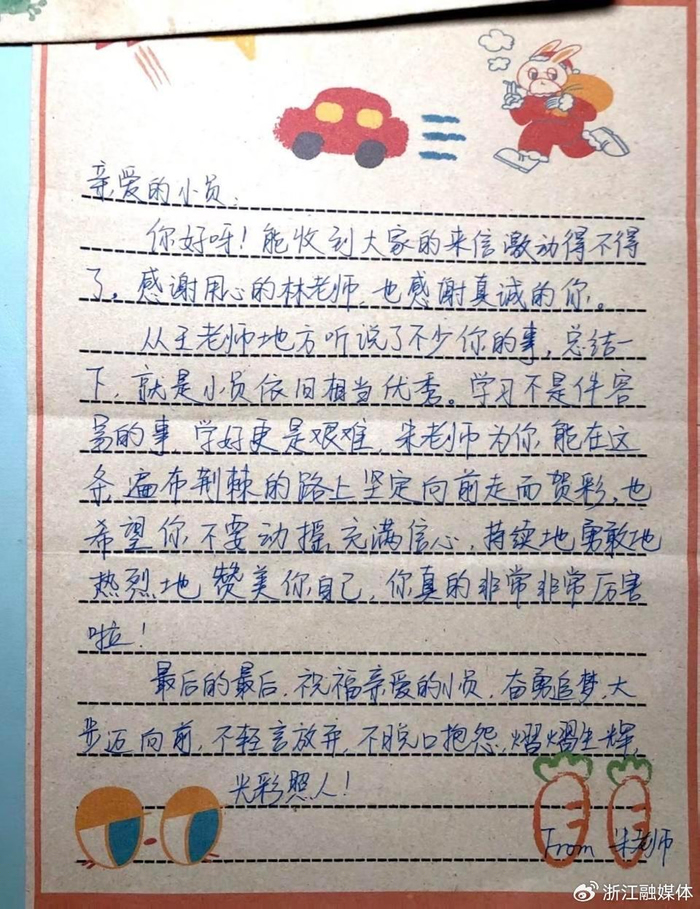 亲爱的小员：
你好呀！能收到大家的来信激动得不得
了。感谢用心的林老师，也感谢真诚的你。
从王老师地方听说了不少你的事，总结一
下，就是小员依旧相当优秀。学习不是件容
易的事，学好更是艰难，朱老师为你能在这
条遍布荆棘的路上坚定向前走而贺彩，也
希望你不要动摇，充满信心，持续地勇敢地
热烈地赞美你自己，你真的非常非常厉害
啦！
最后的最后，祝福亲爱的小员，奋勇追梦，大
步迈向前，不轻言放弃，不脱口抱怨，熠熠生辉，
光彩照人！
From 朱老师
浙江融媒体